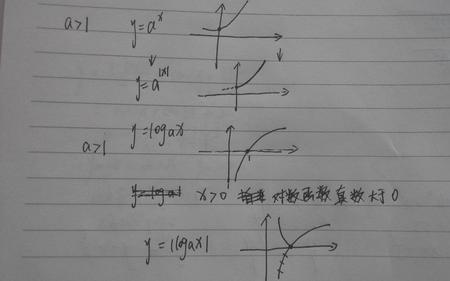 a>1 y=aˣ
↓ ↓
y=a|x|
a>1 y=logax
1
x>0 对数函数真数大于0
y=|logax|